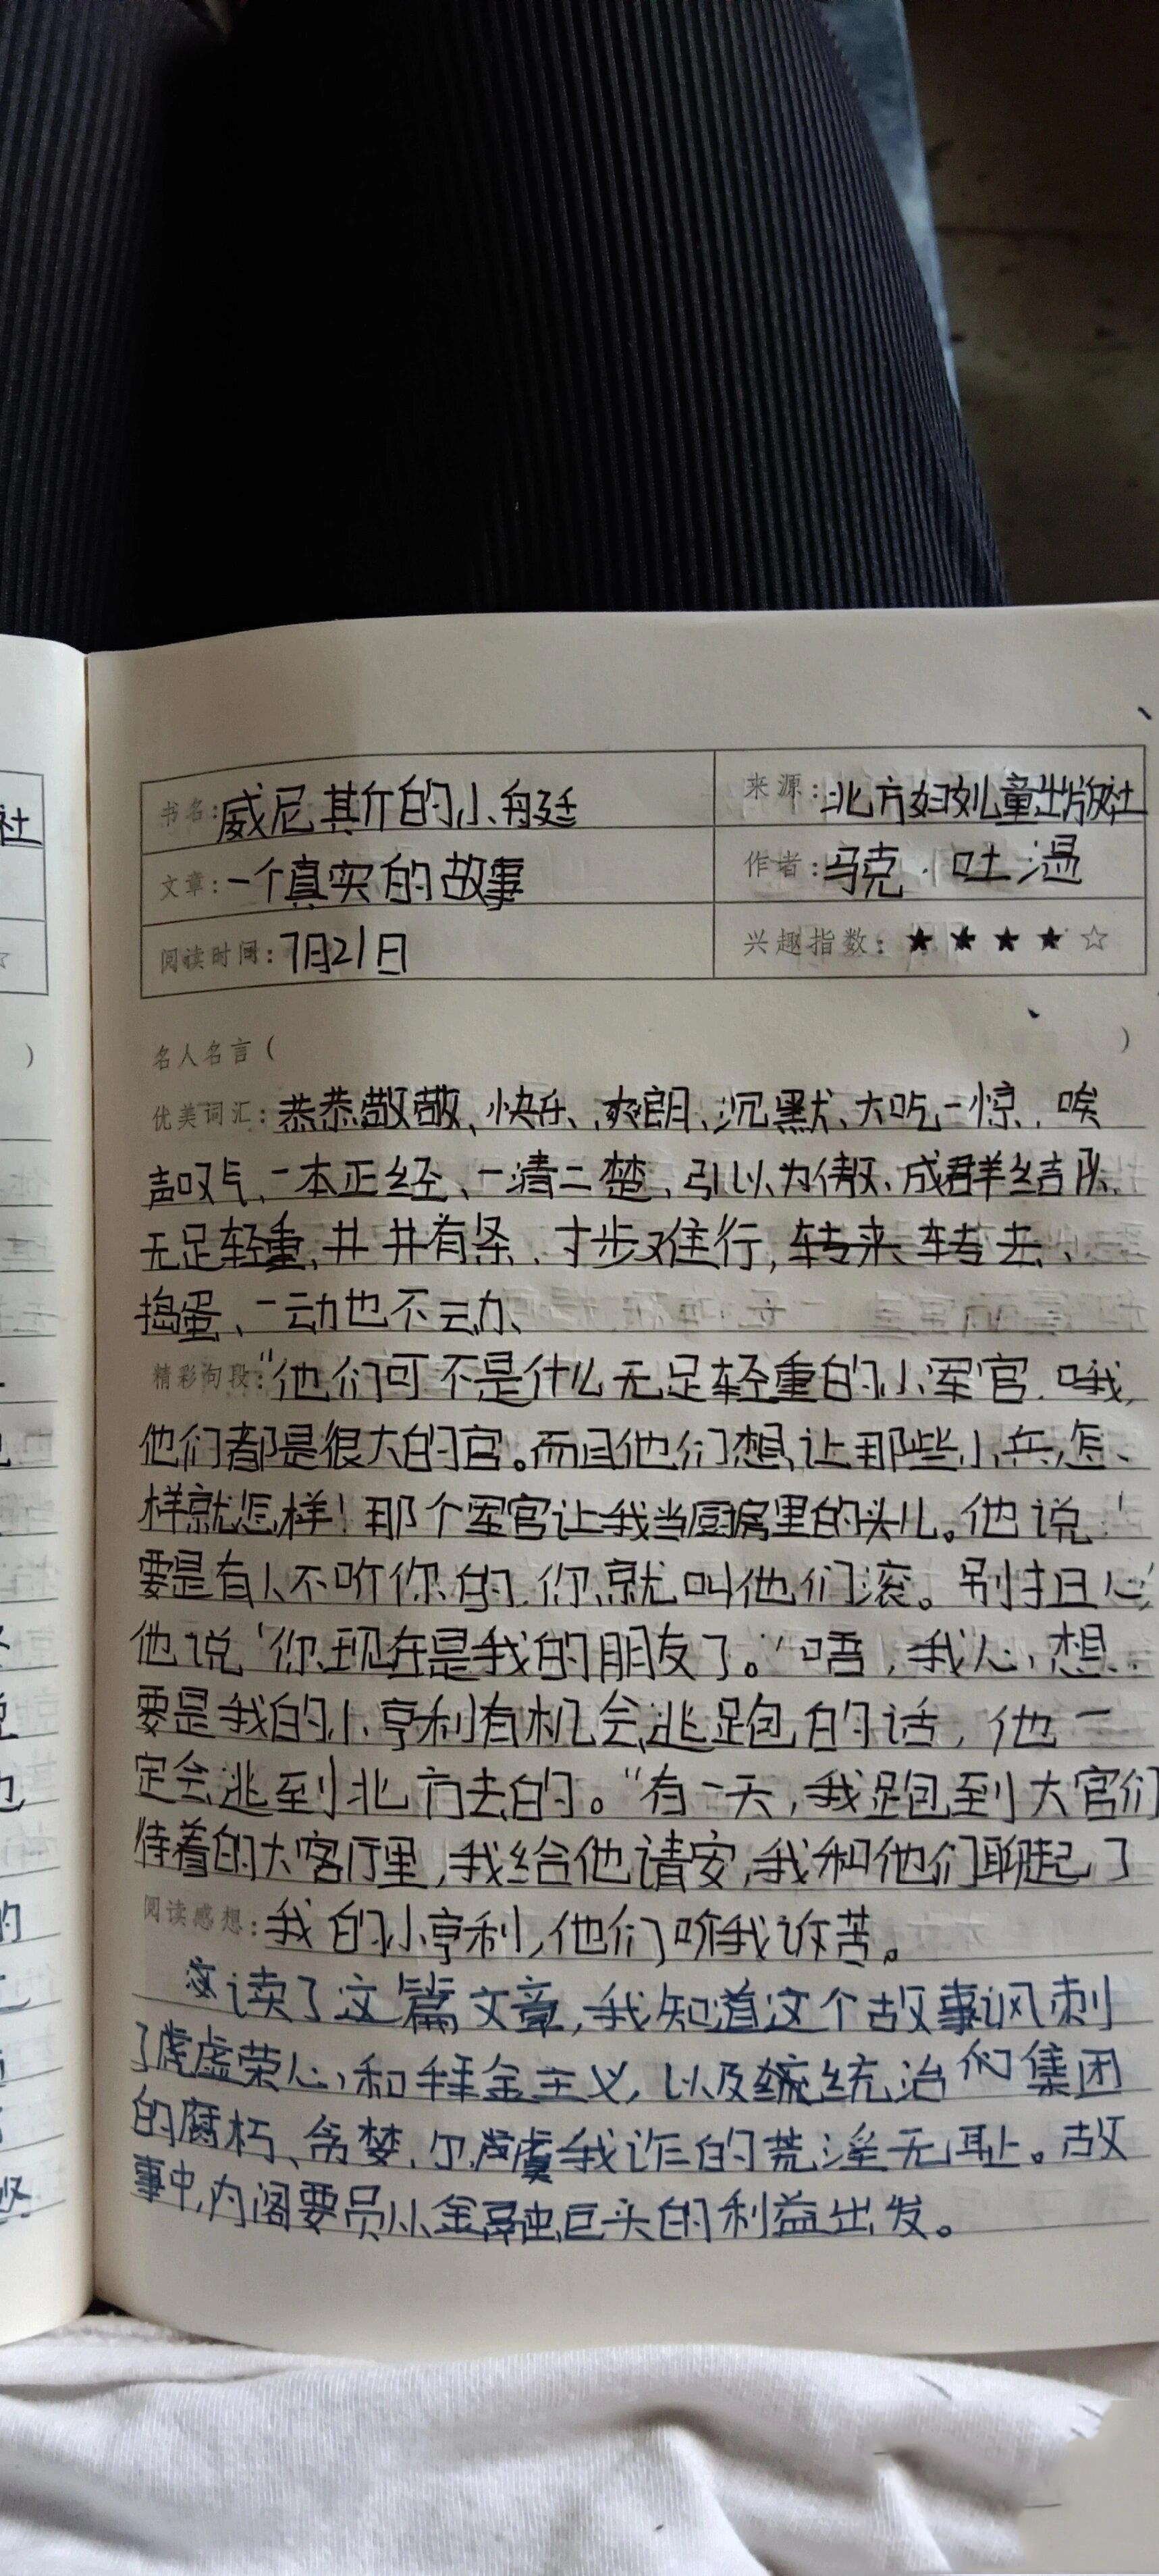 书名:威尼其斤的小舟廷 来源:北方妇女儿童出版社
文章:一个真实的故事 作者:马克·吐温
阅读时间:7月21日 兴趣指数:★★★★☆
名人名言( )
优美词汇:恭恭敬敬、快乐、爽朗、沉默、大吃一惊、唉
声叹气、一本正经、一清二楚、引以为傲、成群结队、
无足轻重、井井有条、寸步难行,转来转去、
捣蛋、一动也不动、
精彩句段:“他们可不是什么无足轻重的小军官。哦,
他们都是很大的官。而且他们想让那些小兵怎、
样就怎样!那个军官让我当厨房里的头儿。他说'
要是有人不听你的,你就叫他们滚。别担心'
他说'你现在是我的朋友了。'唔,我心想
要是我的小亨利有机会逃跑的话,他一
定会逃到北方去的。“有一天,我跑到大官们
待着的大客厅里,我给他请安,我和他们聊起了
阅读感想:我的小亨利,他们听我诉苦。
读了这篇文章,我知道这个故事讽刺
了虚荣心和拜金主义,以及统治集团
的腐朽、贪婪,尔虞我诈的荒淫无耻。故
事中,内阁要员从金融巨头的利益出发。
社